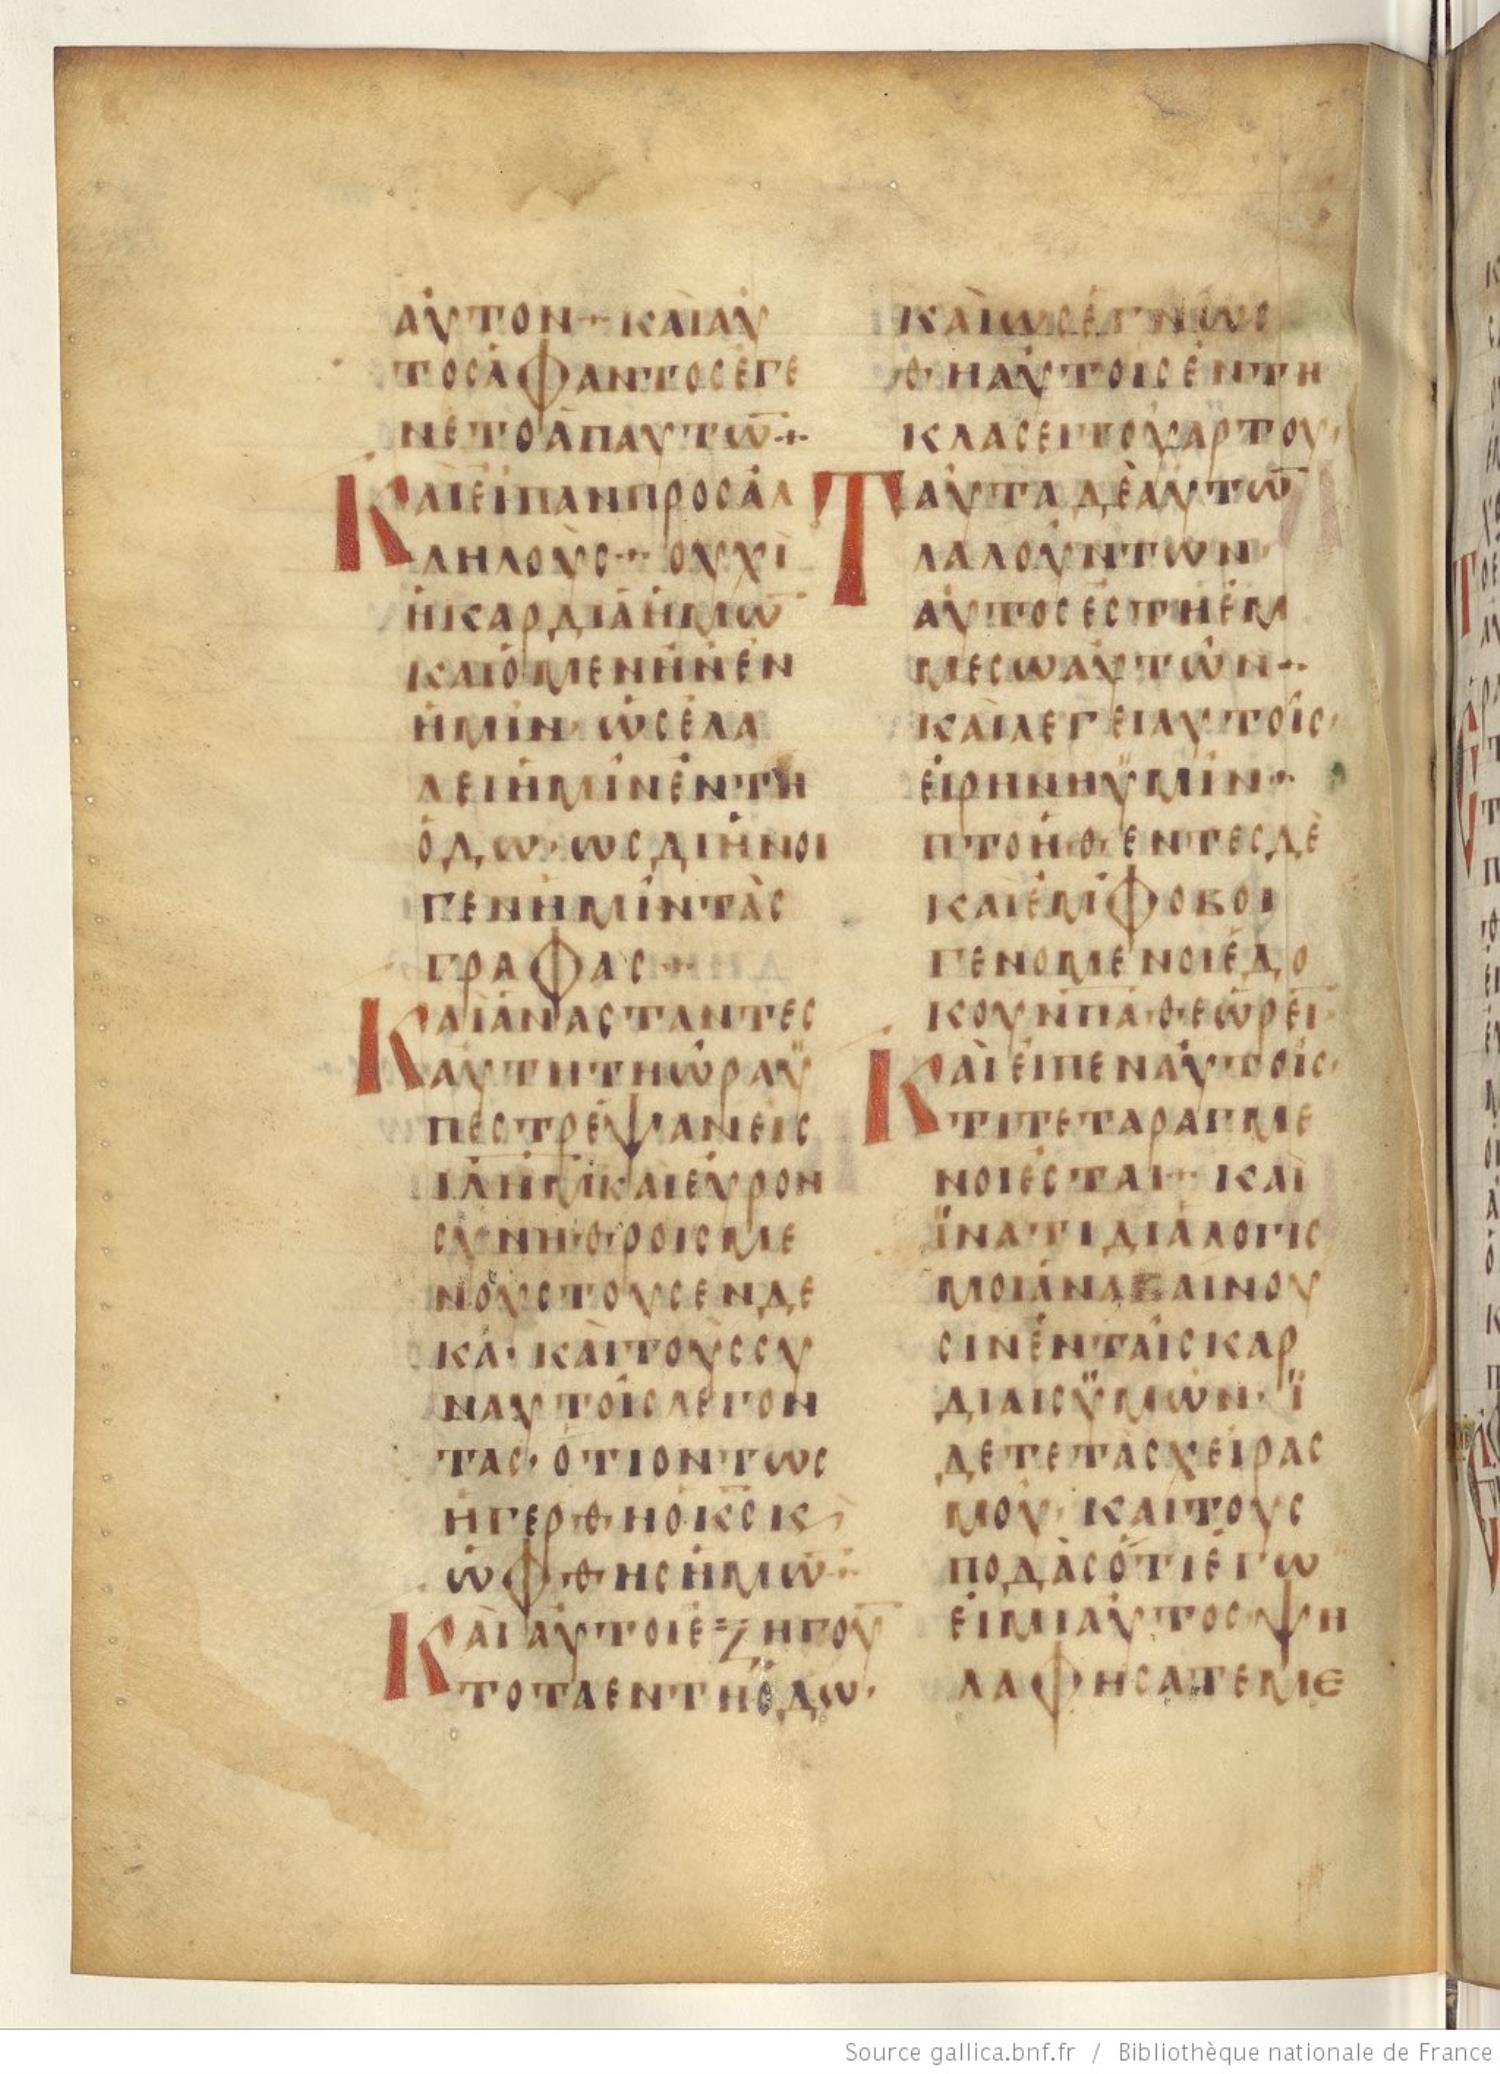 ΑΥΤΟΝ·+ ΚΑΙΑΥ
ΤΟCΑΦΑΝΤΟCΕΓΕ
ΝΕΤΟΑΠΑΥΤΩ̅·+
ΚΑΙΕΙΠΑΝΠΡΟCΑΛ
ΛΗΛΟΥC·+ ΟΥΧΙ
ΗΚΑΡΔΙΑΗΜΩ̅
ΚΑΙΟΜΕΝΗΗΝΕΝ
ΗΜΙΝ· ΩCΕΛΑ
ΛΕΙΗΜΙΝΕΝΤΗ
ΟΔΩ· ΩCΔΙΗΝΟΙ
ΓΕΝΗΜΙΝΤΑC
ΓΡΑΦΑC·+
ΚΑΙΑΝΑCΤΑΝΤΕC
ΑΥΤΗΤΗΩΡΑΫ
ΠΕCΤΡΕΨΑΝΕΙC
ΙΛΗΜ̅ΚΑΙΕΥΡΟΝ
CΥΝΗΘΡΟΙCΜΕ
ΝΟΥCΤΟΥCΕΝΔΕ
ΚΑ· ΚΑΙΤΟΥCCΥ
ΝΑΥΤΟΙCΛΕΓΟΝ
ΤΑC· ΟΤΙΟΝΤΩC
ΗΓΕΡΘΗΟΚ̅C̅Κ,
ΩΦΘΗCΗΜΩ̅·
ΚΑΙΑΥΤΟΙΕΞΗΓΟΥ̅
ΤΟΤΑΕΝΤΗΟΔΩ·
ΚΑΙΩCΕΓΝΩC
ΘΗΑΥΤΟΙCΕΝΤΗ
ΚΛΑCΕΙΤΟΥΑΡΤΟΥ·
ΤΑΥΤΑΔΕΑΥΤΩ̅
ΛΑΛΟΥΝΤΩΝ·
ΑΥΤΟCΕCΤΗΕΜ
ΜΕCΩΑΥΤΩΝ·+
ΚΑΙΛΕΓΕΙΑΥΤΟΙC·
ΕΙΡΗΝΗΫΜΙΝ·+
ΠΤΟΗΘΕΝΤΕCΔΕ
ΚΑΙΕΜΦΟΒΟΙ
ΓΕΝΟΜΕΝΟΙΕΔΟ
ΚΟΥΝΠ̅Ν̅ΑΘΕΩΡΕΙ̅
ΚΑΙΕΙΠΕΝΑΥΤΟΙC·
ΤΙΤΕΤΑΡΑΓΜΕ
ΝΟΙΕCΤΑΙ·+ ΚΑΙ
ΪΝΑΤΙΔΙΑΛΟΓΙC
ΜΟΙΑΝΑΒΑΙΝΟΥ
CΙΝΕΝΤΑΙCΚΑΡ
ΔΙΑΙCΫΜΩΝ· Ϊ
ΔΕΤΕΤΑCΧΕΙΡΑC
ΜΟΥ· ΚΑΙΤΟΥC
ΠΟΔΑCΟΤΙΕΓΩ
ΕΙΜΙΑΥΤΟC· ΨΗ
ΛΑΦΗCΑΤΕΜΕ
Source gallica.bnf.fr / Bibliothèque nationale de France